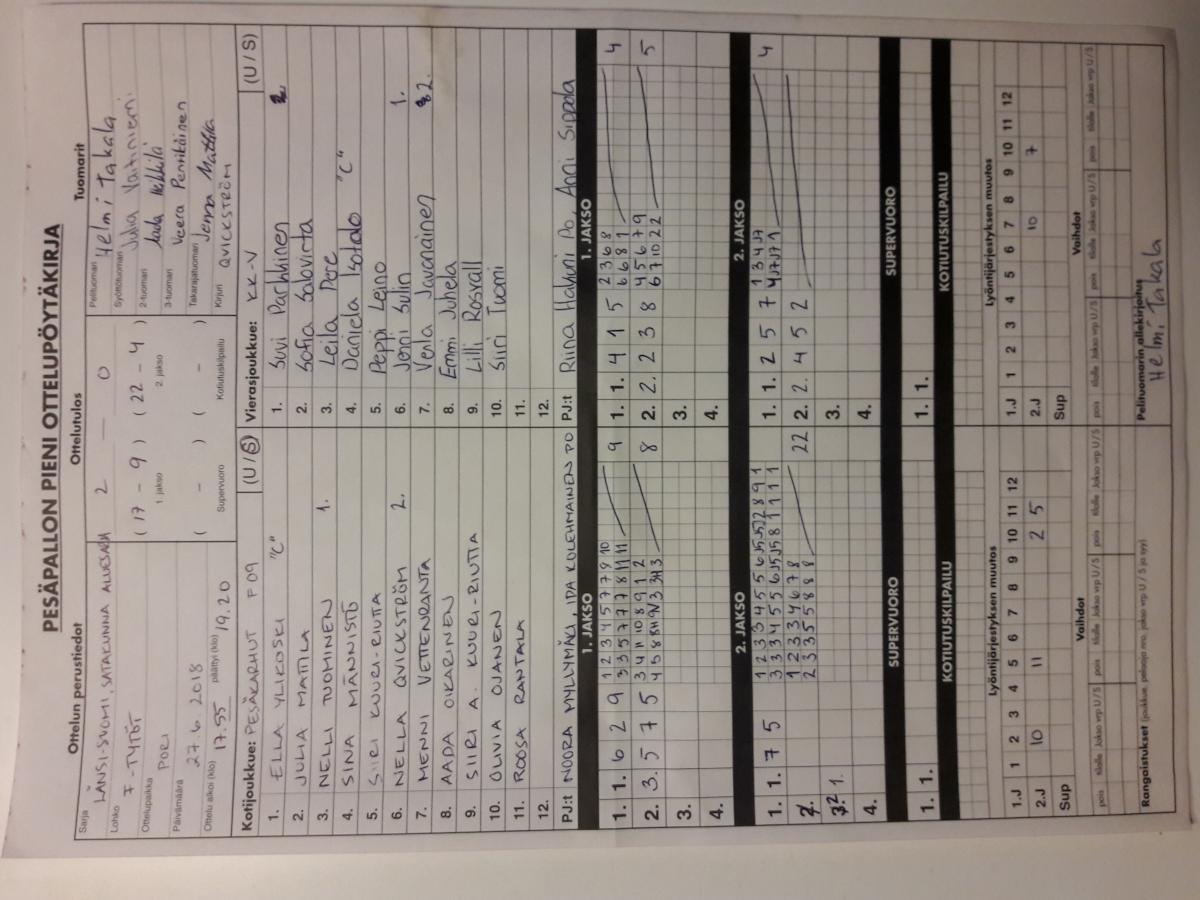 PESÄPALLON PIENI OTTELUPÖYTÄKIRJA
Ottelun perustiedot
Ottelutulos
Tuomarit
Sarja LÄNSI-SUOMI, SATAKUNNA
Lohko F-TYTÖT
Ottelupaikka PORI
Päivämäärä 27.6.2018
Ottelu alkoi (klo) 17.55 päättyi (klo) 19.20
2 — 0
( 17 - 9 ) ( 22 - 4 )
1. jakso 2. jakso
( - ) ( - )
Supervuoro Kotiutuskilpailu
Pelituomari Helmi Takala
Syöttötuomari Julia
2-tuomari Aada Heikkilä
3-tuomari Veera Penttikäinen
Takarajatuomari Jenna Mattila
Kirjuri QVICKSTRÖM
Kotijoukkue: PESÄKARHUT F09 (U / S)
1. ELLA YLIKOSKI "C"
2. JULIA MATTILA
3. NELLI TUOMINEN 1.
4. SINA MÄNNISTÖ
5. SIIRI KUURI-RIUTTA
6. NELLA QVICKSTRÖM 2.
7. MENNI VETTENRANTA
8. AADA OIKARINEN
9. SIIRI A. KUURI-RIUTTA
10. OLIVIA OJANEN
11. ROOSA RANTALA
12.
PJ:t NOORA MYLLYMÄKI, IIDA KOLEHMAINEN PO
Vierasjoukkue: KK-V (U / S)
1. Suvi Parkkinen
2. Sofia Salovirta
3. Leila Pere
4. Daniela Isotalo "C"
5. Peppi Leino
6. Jenni Sulin 1.
7. Venla Javanainen 2.
8. Emmi Juhela
9. Lilli Rosvall
10. Siiri Tuomi
11.
12.
PJ:t Riina Halmri Po, Anni Sippola
1. JAKSO
1. 1. 6 2 9
1 2 3 4 5 7 7 9 10
3 3 5 7 7 7 8 11 11
9
2. 3. 5 7 5
8
3.
4.
1. JAKSO
1. 1. 4 1 5
2 3 6 8
6 6 8 1
4
2. 2. 2 3 8
4 5 6 7 9
6 7 10 2 2
5
3.
4.
2. JAKSO
1. 1. 7 5
2.
1 2 3 3 4 6 7 8
2 3 3 5 5 8 8 8
22
3. 2 1.
4.
2. JAKSO
1. 1. 2 5 7
4
2. 2. 4 5 2
3.
4.
SUPERVUORO
1. 1.
SUPERVUORO
1. 1.
KOTIUTUSKILPAILU
KOTIUTUSKILPAILU
Lyöntijärjestyksen muutos
1 2 3 4 5 6 7 8 9 10 11 12
1.J
2.J 10 11 2 5
Sup
Lyöntijärjestyksen muutos
1 2 3 4 5 6 7 8 9 10 11 12
1.J
2.J 10 7
Sup
Vaihdot
pois tilalle Jakso vrp U / S pois tilalle Jakso vrp U / S pois tilalle Jakso vrp U / S
Vaihdot
pois tilalle Jakso vrp U / S pois tilalle Jakso vrp U / S pois tilalle Jakso vrp U / S
Rangaistukset (joukkue, pelaaja nro, jakso vrp U / S ja syy)
Pelituomarin allekirjoitus
Helmi Takala